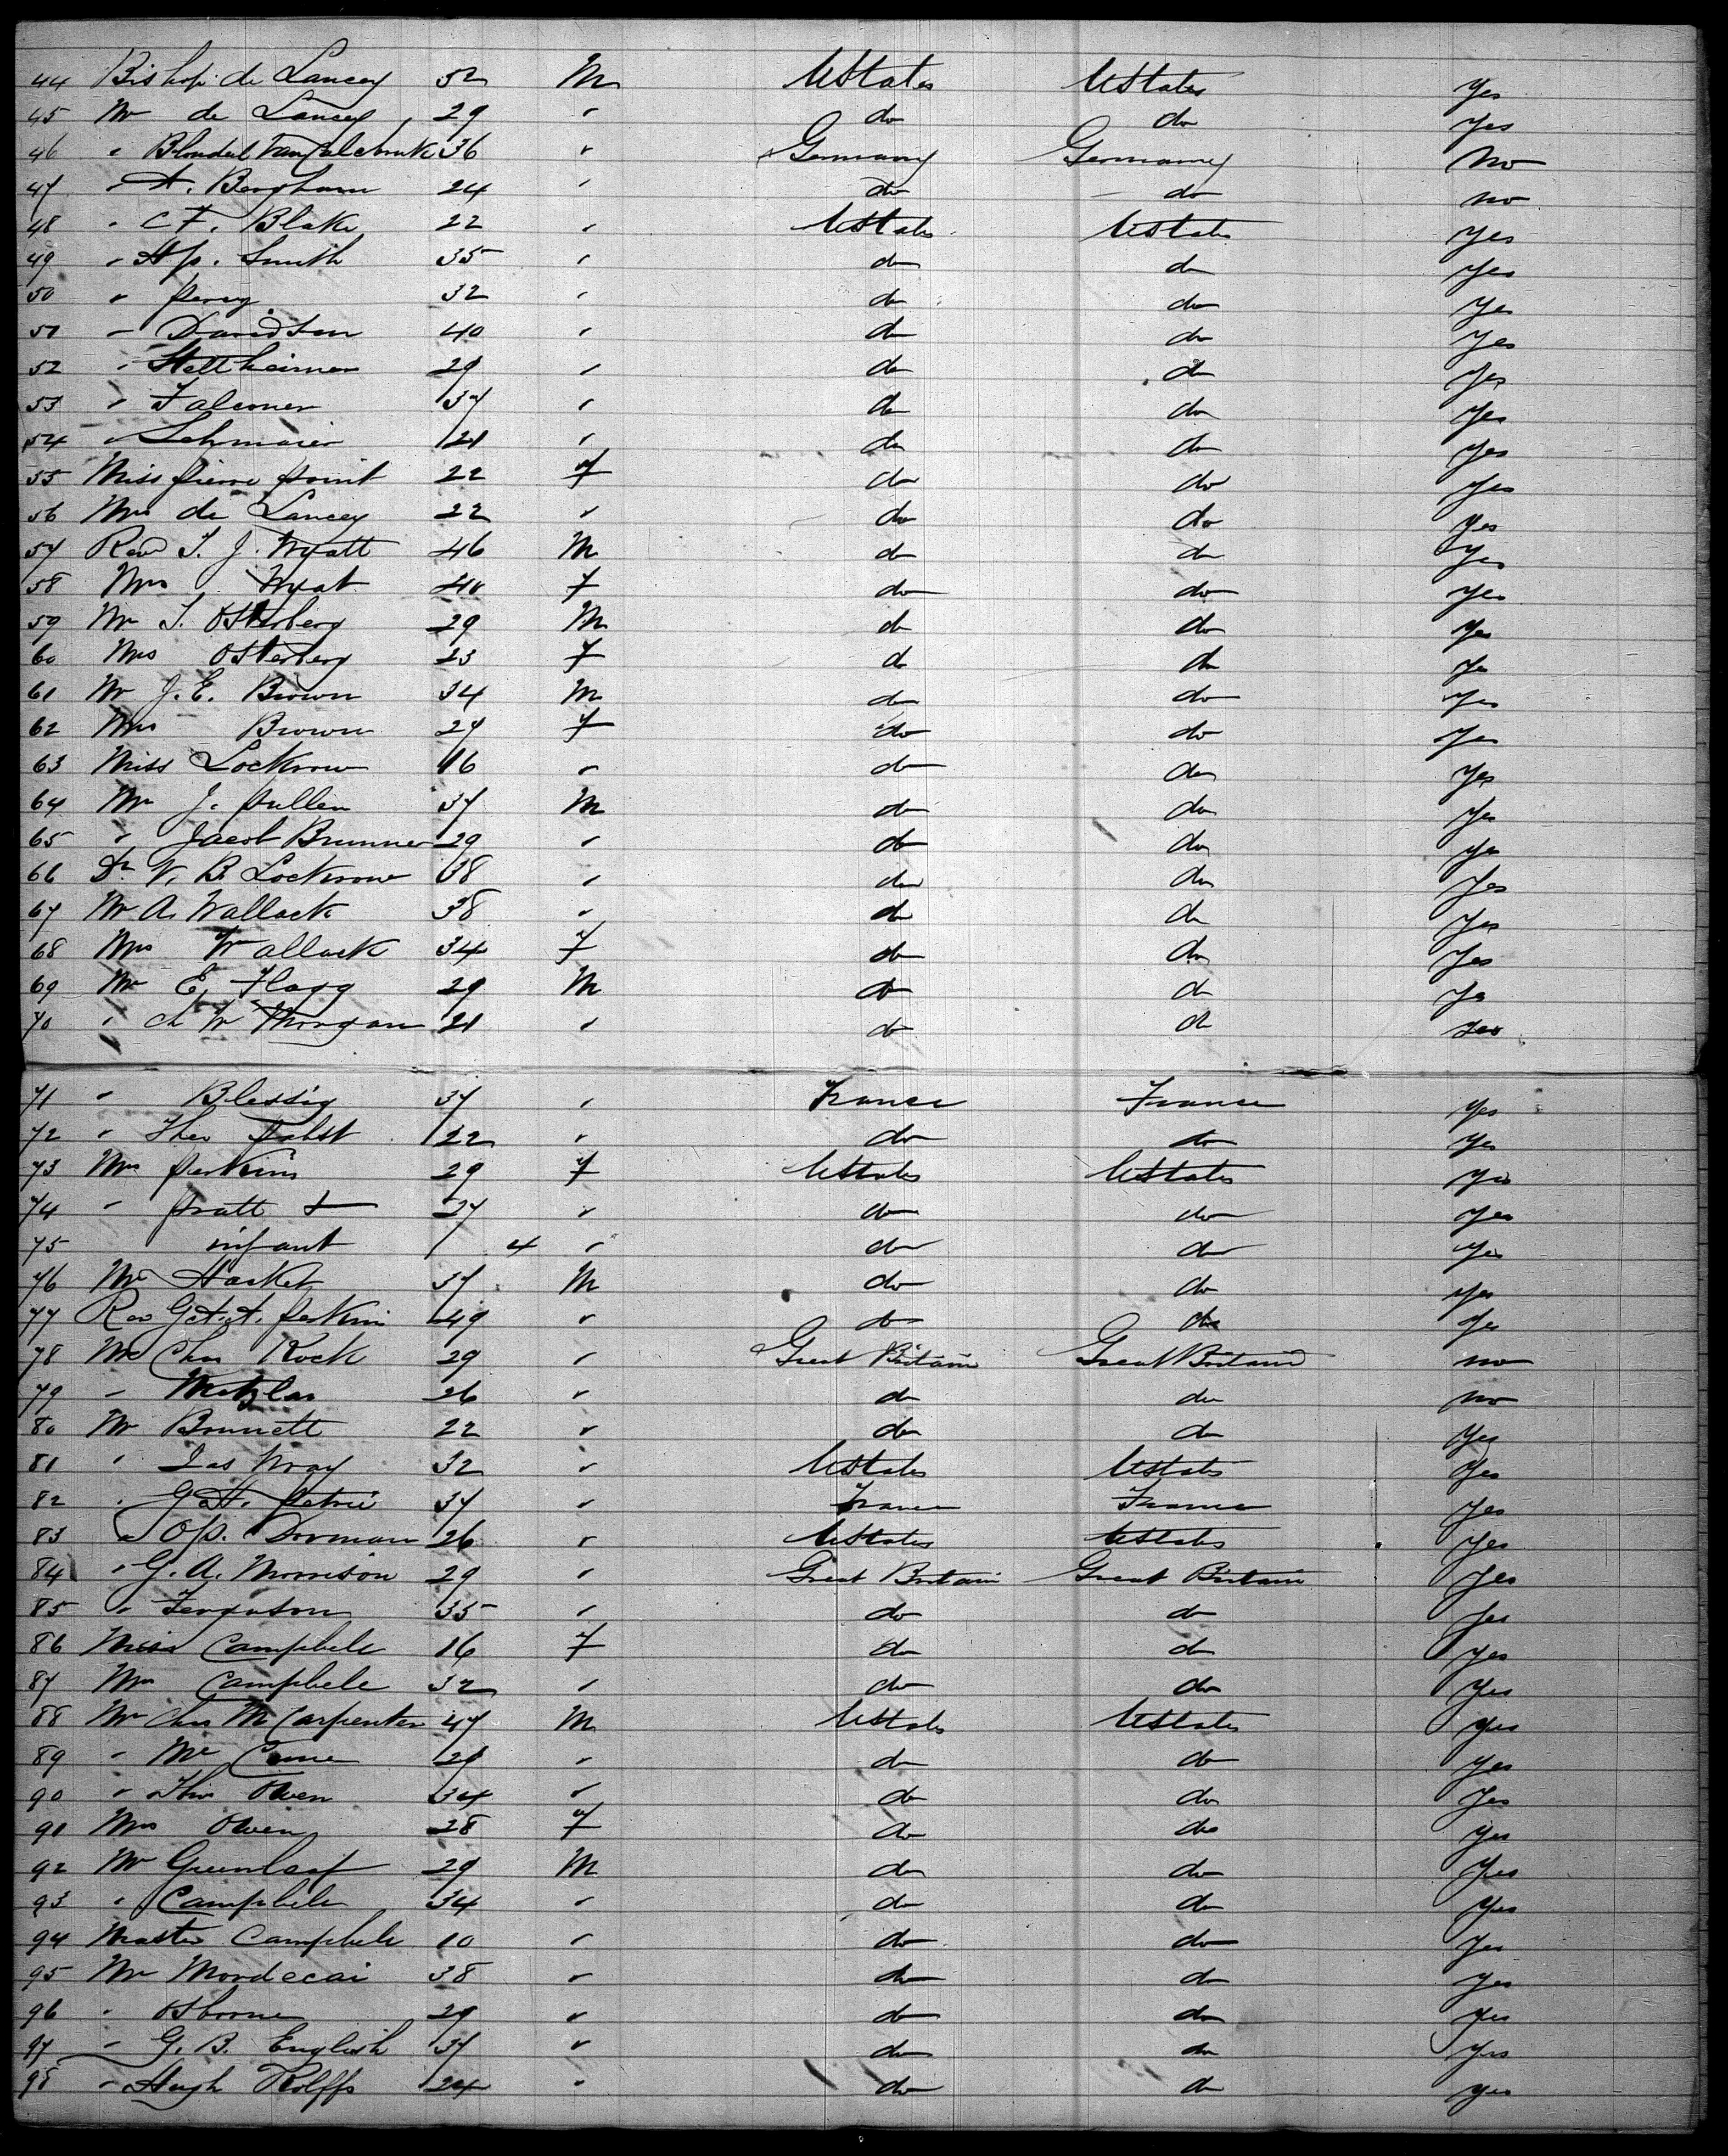 44 Bishop de Lancey 52 M UStates UStates Yes
45 Mr de Lancey 29 " do do Yes
46 " Blondel Van 36 " Germany Germany No
47 " A. Bergham 24 " do do no
48 " C F. Blake 22 " UStates UStates Yes
49 " Hp. Smith 35 " do do Yes
50 " Percy 32 " do do Yes
51 " Davidson 40 " do do Yes
52 " Stettheimer 29 " do do Yes
53 " Falconer 37 " do do Yes
54 " Schmaier 21 " do do Yes
55 Miss Pierre point 22 F do do Yes
56 Mrs de Lancey 22 " do do Yes
57 Revd T. J. Wyatt 46 M do do Yes
58 Mrs Wyat 40 F do do Yes
59 Mr T. Osterberg 29 M do do Yes
60 Mrs Osterberg 23 F do do Ye
61 Mr J. E. Brown 34 M do do Yes
62 Mrs Brown 27 F do do Yes
63 Miss Lockrow 16 " do do Yes
64 Mr J. Pullen 37 M do do Yes
65 " Jacob Brunner 29 " do do Ye
66 Dr V. B. Lockrow 38 " do do Yes
67 Mr A. Wallack 38 " do do Yes
68 Mrs Wallack 34 F do do Yes
69 Mr E. Flagg 29 M do do Ye
70 " Ch W Morgan 21 " do do Yes
71 " Blessig 37 " France France Yes
72 " Theo Pabst 22 " do do Yes
73 Mrs Perkins 29 F UStates UStates Yes
74 " Pratt & 27 " do do Yes
75 infant 4 " do do Yes
76 Mr Hasket 37 M do do Yes
77 Rev Perkins 49 " do do Ye
78 Mr Chas Rock 29 " Great Britain Great Britain no
79 " Metzlar 26 " do do no
80 Mr Bonnett 22 " do do Yes
81 " Jas Wray 32 " UStates UStates Yes
82 " G. H. Petrie 37 " France France Yes
83 " Op. Dorman 26 " UStates UStates Yes
84 " G. A. Morrison 29 " Great Britain Great Britain Yes
85 " Ferguson 35 " do do Yes
86 Miss Campbell 16 F do do Yes
87 Mrs Campbell 32 " do do Yes
88 Mr Chas M Carpenter 47 M UStates UStates Yes
89 " Mc Cune 29 " do do Yes
90 " Thos Owen 34 " do do Yes
91 Mrs Owen 28 F do do Yes
92 Mr Greenleaf 29 M do do Yes
93 " Campbell 34 " do do Yes
94 Master Campbell 10 " do do Yes
95 Mr Mordecai 38 " do do Yes
96 " Osborne 29 " do do Yes
97 " G. B. English 37 " do do Yes
98 " Hugh Rolffs 24 " do do Yes